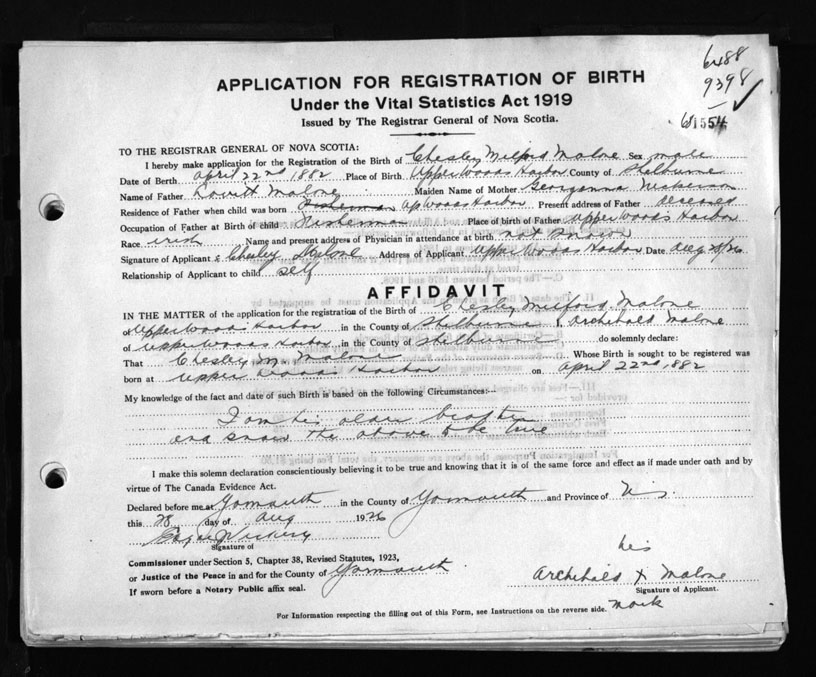 6488
9398
61554
APPLICATION FOR REGISTRATION OF BIRTH
Under the Vital Statistics Act 1919
Issued by The Registrar General of Nova Scotia.
TO THE REGISTRAR GENERAL OF NOVA SCOTIA:
I hereby make application for the Registration of the Birth of Chesley Milford Malone Sex male
Date of Birth April 22nd 1882 Place of Birth Upper Woods Harbor County of Shelburne
Name of Father Malone Maiden Name of Mother Georganna Nickerson
Residence of Father when child was born Up Woods Harbor Present address of Father deseased
Occupation of Father at Birth of child Fisherman Place of birth of Father Upper Woods Harbor
Race irish Name and present address of Physician in attendance at birth not known
Signature of Applicant Chesley Malone Address of Applicant Upper Woods Harbor Date Aug 28/26
Relationship of Applicant to child self
AFFIDAVIT
IN THE MATTER of the application for the registration of the Birth of Chesley Milford Malone
of Upper Woods Harbor in the County of Shelburne I Archibald Malone
of Upper Woods Harbor in the County of Shelburne do solemnly declare:
That Chesley M. Malone Whose Birth is sought to be registered was
born at Upper Woods Harbor on April 22nd 1882
My knowledge of the fact and date of such Birth is based on the following Circumstances:—
I am his older brother
and know the above to be true
I make this solemn declaration conscientiously believing it to be true and knowing that it is of the same force and effect as if made under oath and by
virtue of The Canada Evidence Act.
Declared before me at Yarmouth in the County of Yarmouth and Province of N.S.
this 28 day of Aug 1926
Signature of
Commissioner under Section 5, Chapter 38, Revised Statutes, 1923,
or Justice of the Peace in and for the County of Yarmouth
If sworn before a Notary Public affix seal.
his
Archibald X Malone
mark
Signature of Applicant.
For Information respecting the filling out of this Form, see Instructions on the reverse side.